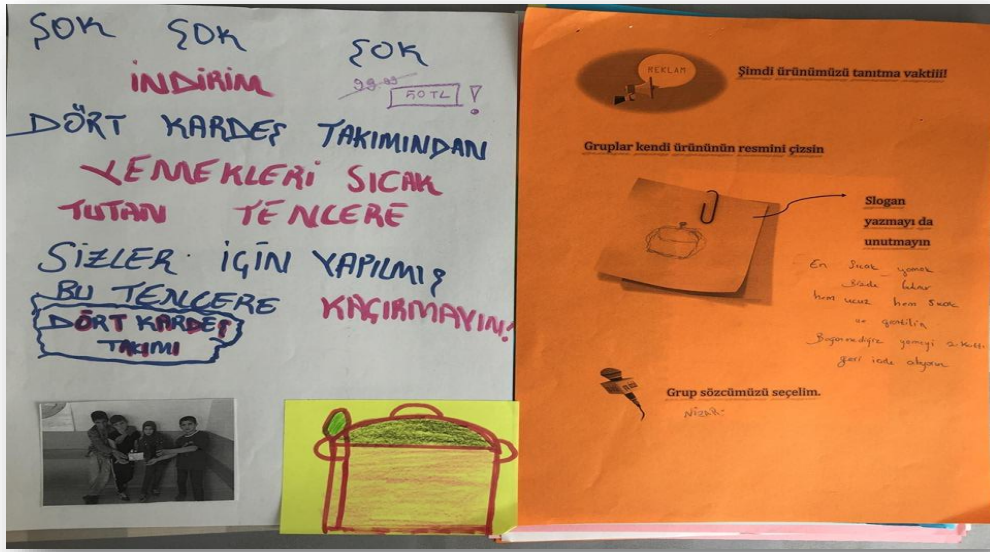 ŞOK ŞOK ŞOK
İNDİRİM
99.99
50 TL !
DÖRT KARDEŞ TAKIMINDAN
YEMEKLERİ SICAK
TUTAN TENCERE
SİZLER İÇİN YAPILMIŞ
BU TENCERE
KAÇIRMAYIN!
DÖRT KARDEŞ
TAKIMI
REKLAM
Şimdi ürünümüzü tanıtma vaktiii!
Gruplar kendi ürününün resmini çizsin
Slogan
yazmayı da
unutmayın
En Sıcak yemek
Bizde
hem ucuz hem Sıcak
ve
Beğenmediğiz yemeği 2. katı
geri iade alıyoruz
Grup sözcümüzü seçelim.